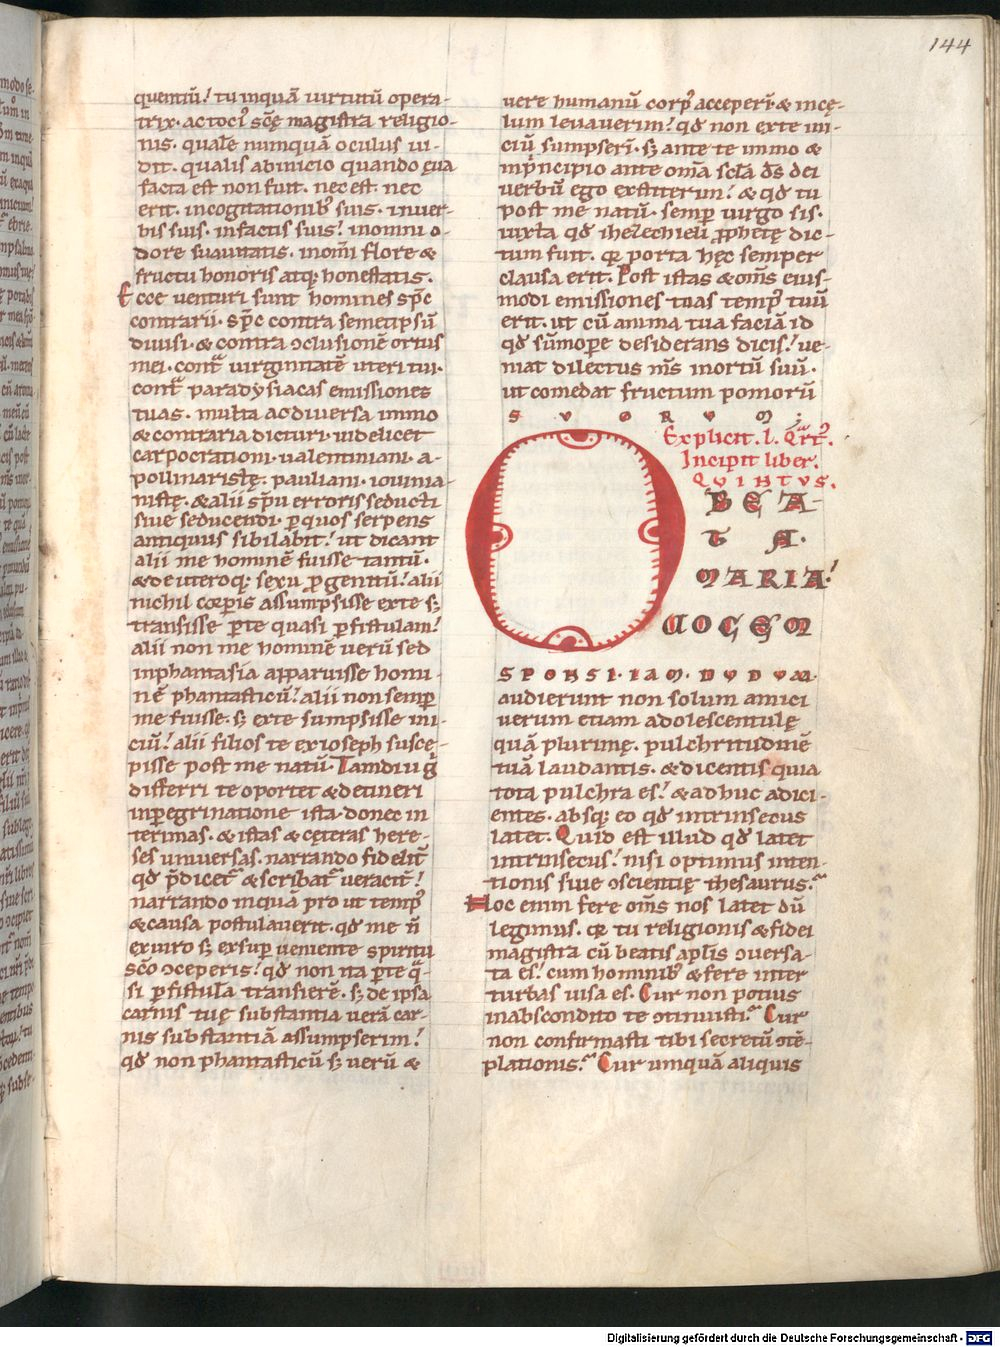 144
quentiū! tu inquā uirtutū opera-
trix. ac toci᷒ scę̄ magistra religio-
nis. qualē numquā oculus ui-
dit. qualis abinicio quando ęua
facta est non fuit. nec est. nec
erit. incogitationib᷒ suis. inuer-
bis suis. infactis suis! inomni o-
dore suauitatis. inom̄i flore &
fructu honoris atq; honestatis.
Ecce uenturi sunt homines sp̄c
contrarii. sp̄c contra semetipsū
diuisi. & contra ↄclusionē ortus
mei. contᷓ uirginitatē uteri tui.
contᷓ paradysiacas emissiones
tuas. multa ac diuersa immo
& contraria dicturi. uidelicet
carpocrationi. ualentiniani. a-
pollinaristę. pauliani. iouinia-
nistę. & alii sp̄u erroris seducti
siue seducendi. ꝑ quos serpens
antiquus sibilabit! ut dicant
alii me hominē fuisse tantū.
& de utroq; sexu ꝓgenitū! alii
nichil corꝑis assumpsisse ex te sꝫ
transisse ꝑ te quasi ꝑ fistulam!
alii non me hominē uerū sed
inphantasia apparuisse homi-
nē phantasticū! alii non semꝑ
me fuisse. sꝫ ex te sumpsisse ini-
ciū! alii filios te ex ioseph susce-
pisse post me natū. Tamdiu g̊
differri te oportet & detineri
inperegrinatione ista. donec in
terimas. & istas & cęteras here-
ses uniuersas. narrando fidelit̄
qđ p̄dicetᷓ & scribatᷓ ueracit̄!
narrando inqua pro ut temp᷒
& causa postulauerit. qđ me n̄
exuiro sꝫ exsuꝑ ueniente spiritu
sc̄o ↄceperis! qđ non ita ꝑ te qᷓ-
si ꝑ fistula transierē. sꝫ de ipsa
carnis tuę substantia uerā car-
nis substantiā assumpserim!
qđ non phantasticū sꝫ uerū &
uere humanū corp᷒ acceperī. & incę-
lum leuauerim! qđ non ex te ini-
ciū sumpserī. sꝫ ante te immo &
inp̄ncipio ante om̄a sc̄la d̄s dei
uerbū ego exstiterim! & qđ tu
post me natū. semꝑ uirgo sis.
iuxta qđ ihezechieli ꝓphetę dic-
tum fuit. qꝛ porta hęc semper
clausa erit. Post istas & om̄s eius-
modi emissiones tuas temp᷒ tuū
erit. ut cū anima tua faciā id
qđ sūmoꝑe desiderans dicis! ue-
niat dilectus m̄s inortū suū.
ut comedat fructum pomorū
SUORUM;
Explicit. l. Qᷓrt᷒.
Incipit liber.
QUINTUS.
O BEA-
TA.
MARIA!
UOCEM
SPONSI. IAM. DUDUM.
audierunt non solum amici
uerum etiam adolescentulę
quā plurimę. pulchritudinē
tuā laudantis. & dicentis quia
tota pulchra es! & adhuc adici-
entes. absq; eo qđ intrinsecus
latet. Quid est illud qđ latet
intrinsecus! nisi optimus inten-
tionis siue ↄscientię thesaurus.
Hoc enim fere om̄s nos latet dū
legimus. qꝛ tu religionis & fidei
magistra cū beatis ap̄lis ↄuersa-
ta es! cum hominib᷒ & fere inter
turbas uisa es. Cur non potius
inabscondito te ↄtinuisti. Cur
non confirmasti tibi secretū ↄtē-
plationis. Cur umquā aliquis
Digitalisierung gefördert durch die Deutsche Forschungsgemeinschaft - DFG